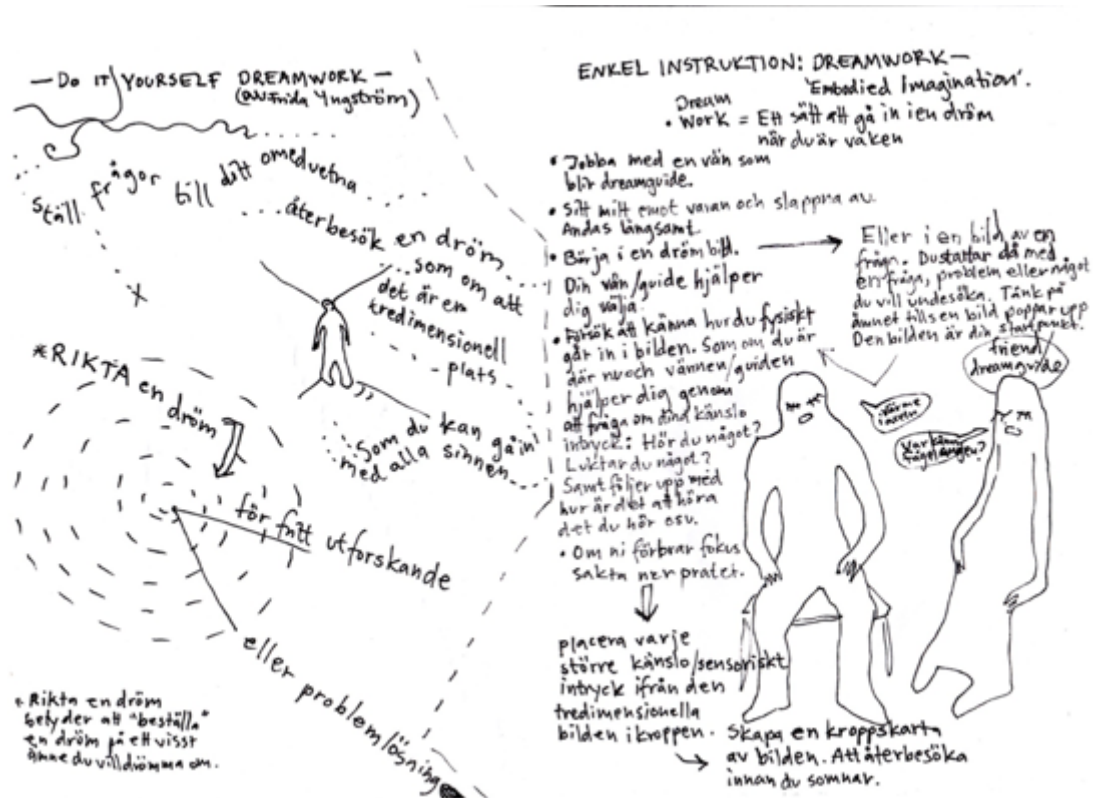 — DO IT YOURSELF DREAMWORK —
(av Frida Yngström)
Ställ frågor till ditt omedvetna
.... återbesök en dröm....
...som om att
det är en
tredimensionell
plats
som du kan gå in i
med alla sinnen
*RIKTA en dröm
för fritt utforskande
eller problemlösning
* Rikta en dröm
betyder att "beställa"
en dröm på ett visst
ämne du vill drömma om.
ENKEL INSTRUKTION: DREAMWORK —
'Embodied Imagination'.
Dream
• Work = Ett sätt att gå in i en dröm
när du är vaken
• Jobba med en vän som
blir dreamguide.
• Sitt mitt emot varan och slappna av.
Andas långsamt
• Börja i en dröm bild.
Din vän/guide hjälper
dig välja.
Eller i en bild av en
fråga. Du startar då med
en fråga, problem eller något
du vill undesöka. Tänk på
ämnet tills en bild poppar upp
Den bilden är din startpunkt.
• Försök att känna hur du fysiskt
går in i bilden. Som om du är
där nu och vännen/guiden
hjälper dig genom
att fråga om dina känslo
intryck: Hör du något?
Luktar du något?
Samt följer upp med
hur är det att höra
det du hör osv.
• Om ni förbrar fokus
sakta ner pratet.
friend
dreamguide
Värme
Var känns
placera varje
större känslo/sensoriskt
intryck ifrån den
tredimensionella
bilden i kroppen.
Skapa en kroppskarta
av bilden. Att återbesöka
innan du somnar.